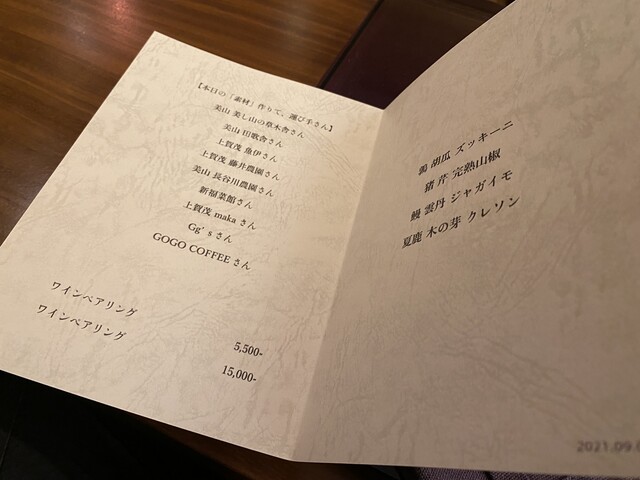 【本日の「素材」作りて、運び手さん】
美山 美し山の草木舎さん
美山 田歌舎さん
上賀茂 魚伊さん
上賀茂 藤井農園さん
美山 長谷川農園さん
新福菜館さん
上賀茂 maka さん
Gg's さん
GOGO COFFEE さん
ワインペアリング
5,500-
ワインペアリング
15,000-
胡瓜 ズッキーニ
猪 芹 完熟山椒
鰻 雲丹 ジャガイモ
夏鹿 木の芽 クレソン
2021.09.